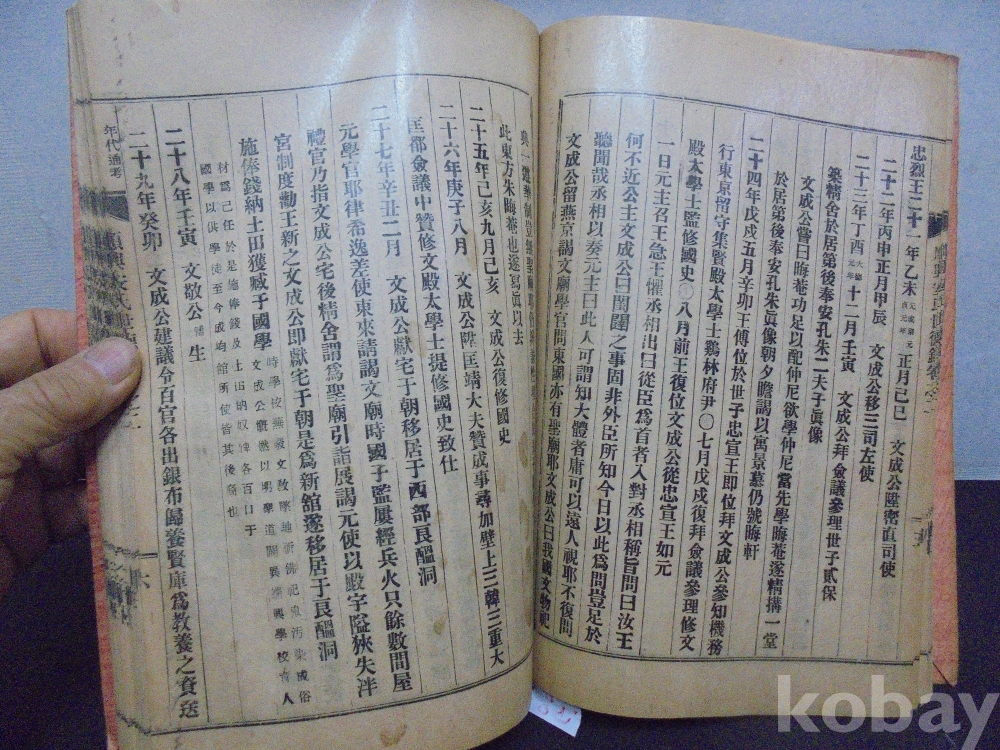 忠烈王二十一年乙未 元成宗元貞元年 正月己巳 文成公陞密直司使
二十二年丙申正月甲辰 文成公移三司左使
二十三年丁酉 大德元年 十二月壬寅 文成公拜僉議參理世子貳保
築精舍於居第後奉安孔朱二夫子眞像
文成公嘗曰晦菴功足以配仲尼欲學仲尼當先學晦菴遂精搆一堂
於居第後奉安孔朱眞像朝夕瞻謁以寓景慕仍號晦軒
二十四年戊戌五月辛卯王傳位於世子忠宣王卽位拜文成公參知機務
行東京留守集賢殿太學士鷄林府尹〇七月戊戌復拜僉議參理修文
殿太學士監修國史〇八月前王復位文成公從忠宣王如元
一日元主召王急王懼丞相出曰從臣爲首者入對丞相稱旨問曰汝王
何不近公主文成公曰閨闥之事固非外臣所知今日以此爲問豈足於
聽聞哉丞相以奏元主曰此人可謂知大體者庸可以遠人視耶不復問
文成公留燕京謁文廟學官問東國亦有聖廟耶文成公曰我國文物祀
典一遵華制豈無聖廟
此東方朱晦菴也遂寫眞以去
二十五年己亥九月己亥 文成公復修國史
二十六年庚子八月 文成公陞匡靖大夫贊成事尋加壁上三韓三重大
匡都僉議中贊修文殿太學士提修國史致仕
二十七年辛丑二月 文成公獻宅于朝移居于西部良醞洞
元學官耶律希逸差使東來請謁文廟時國子監屢經兵火只餘數間屋
禮官乃指文成公宅後精舍謂爲聖廟引詣展謁元使以殿宇隘狹失泮
宮制度勸王新之文成公卽獻宅于朝是爲新舘遂移居于良醞洞
施俸錢納土田獲臧于國學 時學校無敎文敎墜地 佛祀 汚染成俗 文成公慨然以明學道闢異 興學校育人
材爲己任於是施俸錢及土田納奴婢各百口于
國學以供學徒至今成均館所使皆其後裔也
二十八年壬寅 文敬公 生
二十九年癸卯 文成公建議令百官各出銀布歸養賢庫爲敎養之資送
年代通考
六
kobay